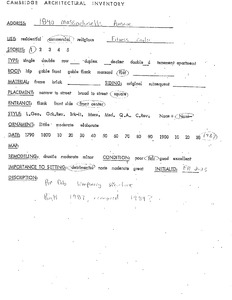 CAMBRIDGE ARCHITECTURAL INVENTORY
ADDRESS: 1840 Massachusetts Avenue
USE: residential commercial religious Fitness
STORIES: 1 2 3 4 5
TYPE: single double row duplex decker double tenement apartment
ROOF: hip gable front gable flank mansard flat
MATERIAL: frame brick SIDING: original subsequent
PLACEMENT: narrow to street broad to street square
ENTRANCE: flank front side front center
STYLE: Mans, Med, Q.A., None
ORNAMENT: little moderate elaborate
DATE: 1790 1810 20 30 40 50 60 70 80 90 1900 10 20 30
MAP:
REMODELING: drastic moderate minor CONDITION: poor fair good excellent
IMPORTANCE TO SETTING: detrimental none moderate great INITIALS:
DESCRIPTION:
Built 1987,